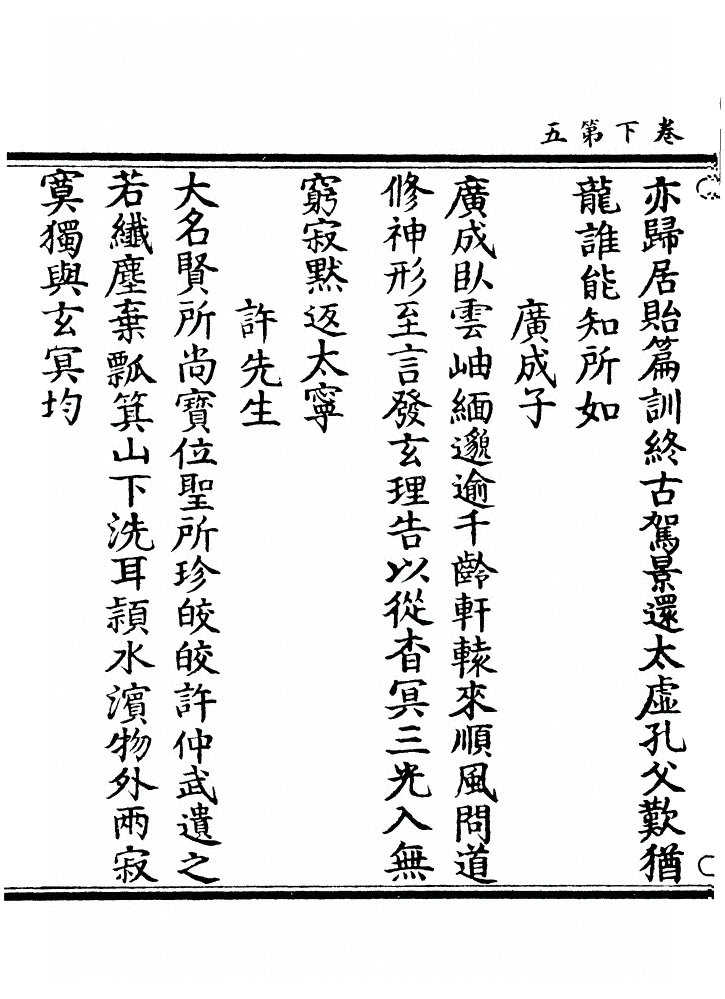 卷下第五
亦歸居貽篇訓終古駕景還太虛孔父歎猶
龍誰能知所如
廣成子
廣成臥雲岫緬邈逾千齡軒轅來順風問道
修神形至言發玄理告以從杳冥三光入無
窮寂默返太寧
許先生
大名賢所尚寶位聖所珍皎皎許仲武遺之
若纖塵棄瓢箕山下洗耳潁水濱物外兩寂
寞獨與玄冥均